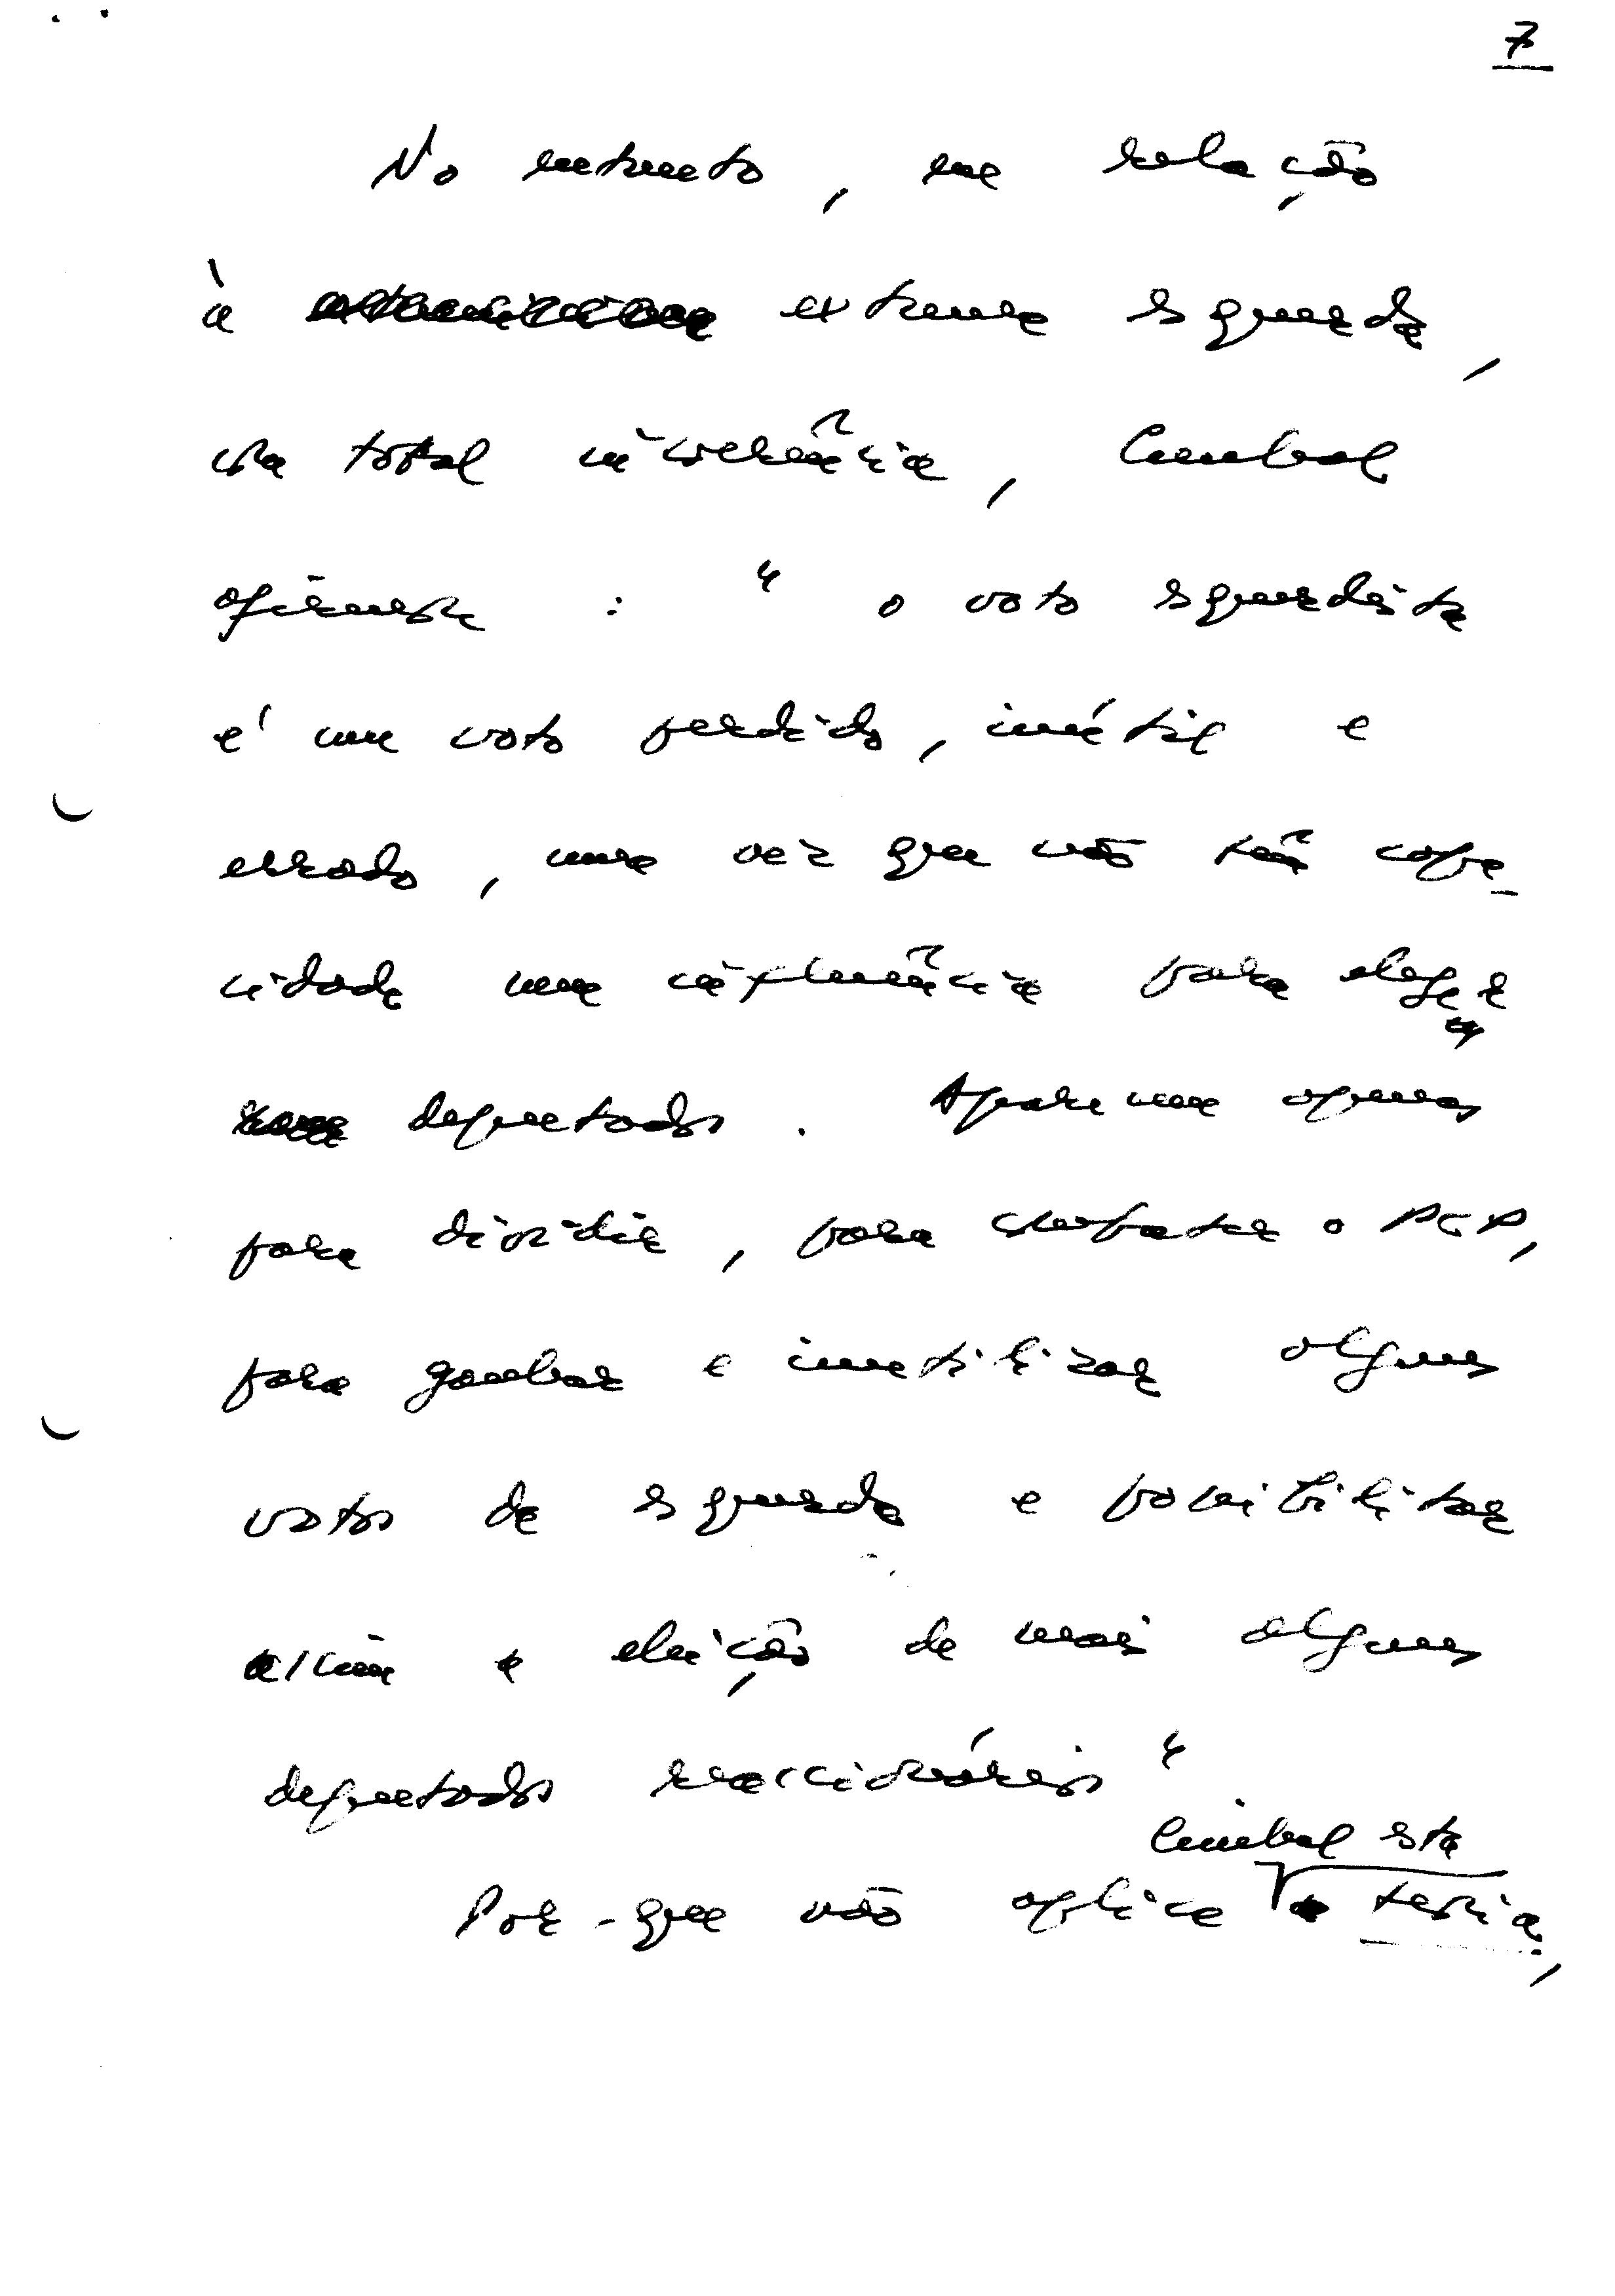 7
No entanto, em relação
à extrema esquerda,
na total incoerência, Cunhal
afirma : " o voto esquerdista
é um voto perdido, inútil e
errado, uma vez que não tem capa-
cidade nem influência para eleger
deputados". Aparecem apenas
para dividir, para combater o PCP,
para ganhar e inutilizar alguns
votos de esquerda e possibilitar
assim a eleição de mais alguns
deputados reaccionários "
Cunhal esta
Por-que não aplica teoria,